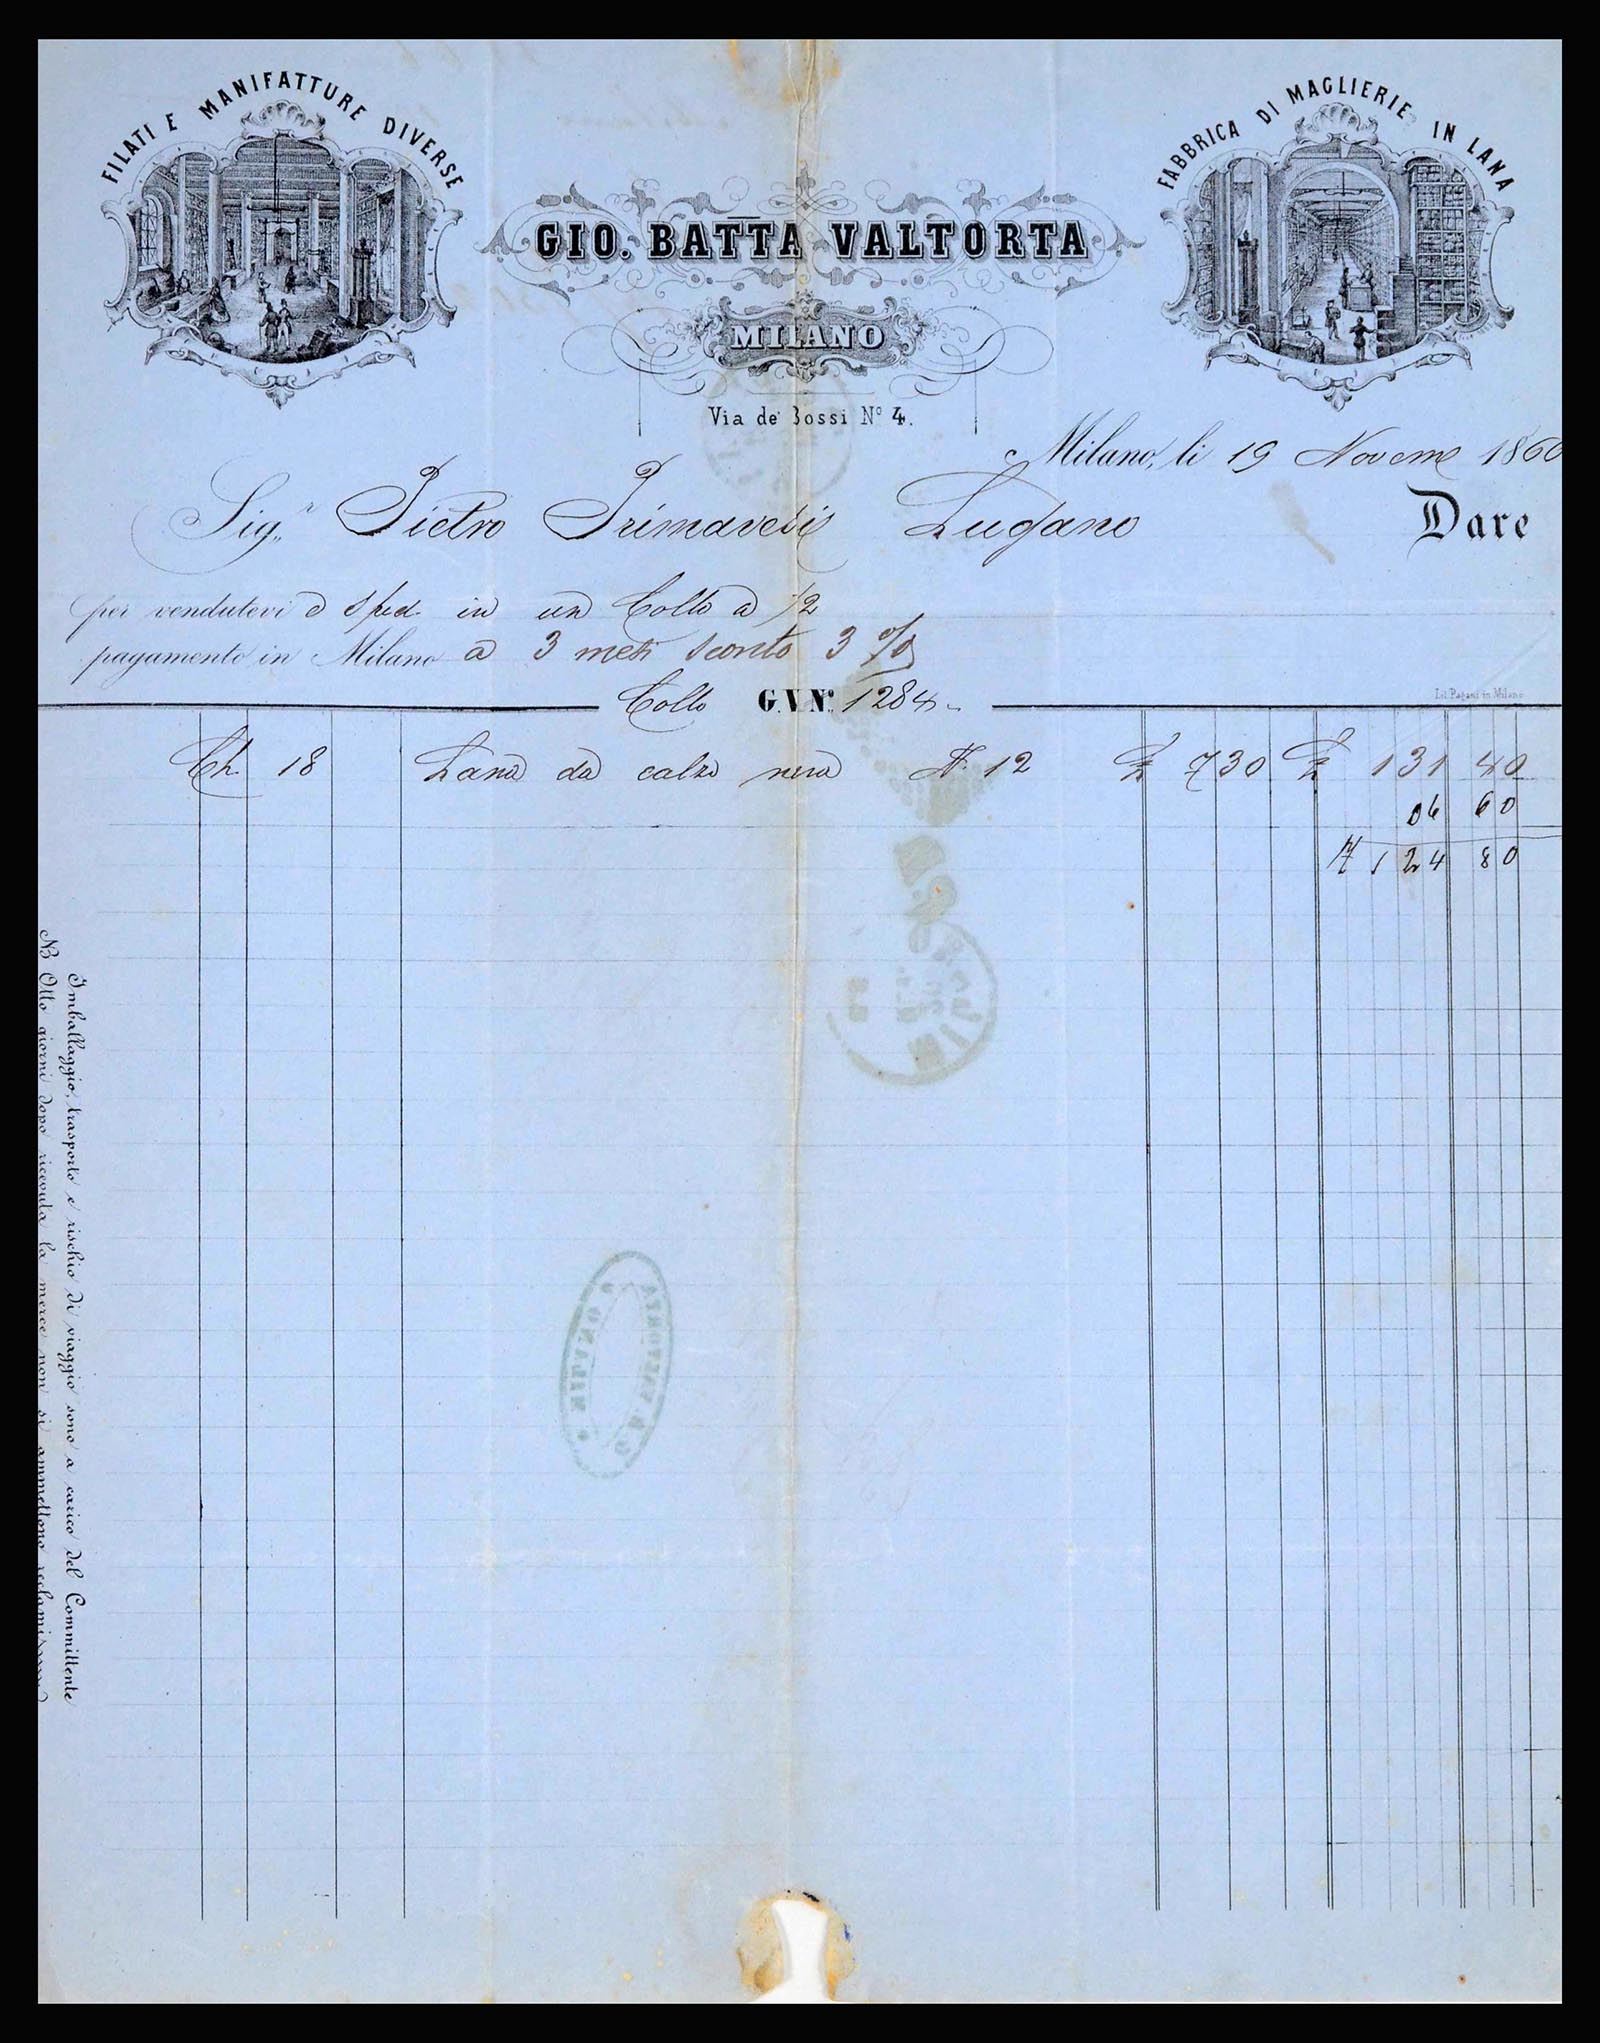 FILATI E MANIFATTURE DIVERSE
FABBRICA DI MAGLIERIE IN LANA
GIO. BATTA VALTORTA
MILANO
Via de' Bossi Nº 4.
Milano, li 19 1860
Sig.r Pietro Lugano Dare
per vendutevi e sped. in un Collo a 1/2
pagamento in Milano a 3 mesi sconto 3 %
Lit. Pagani in Milano
Collo G.V. Nº 1284
Ch. 18 Lana da calze nera N. 12 £ 730 £ 131 40
06 60
124 80
Imballaggio, trasporto e rischio di viaggio sono a carico del Committente
NB Otto giorni dopo ricevuta la merce non si ammettono reclami
G. B. VALTORTA
MILANO